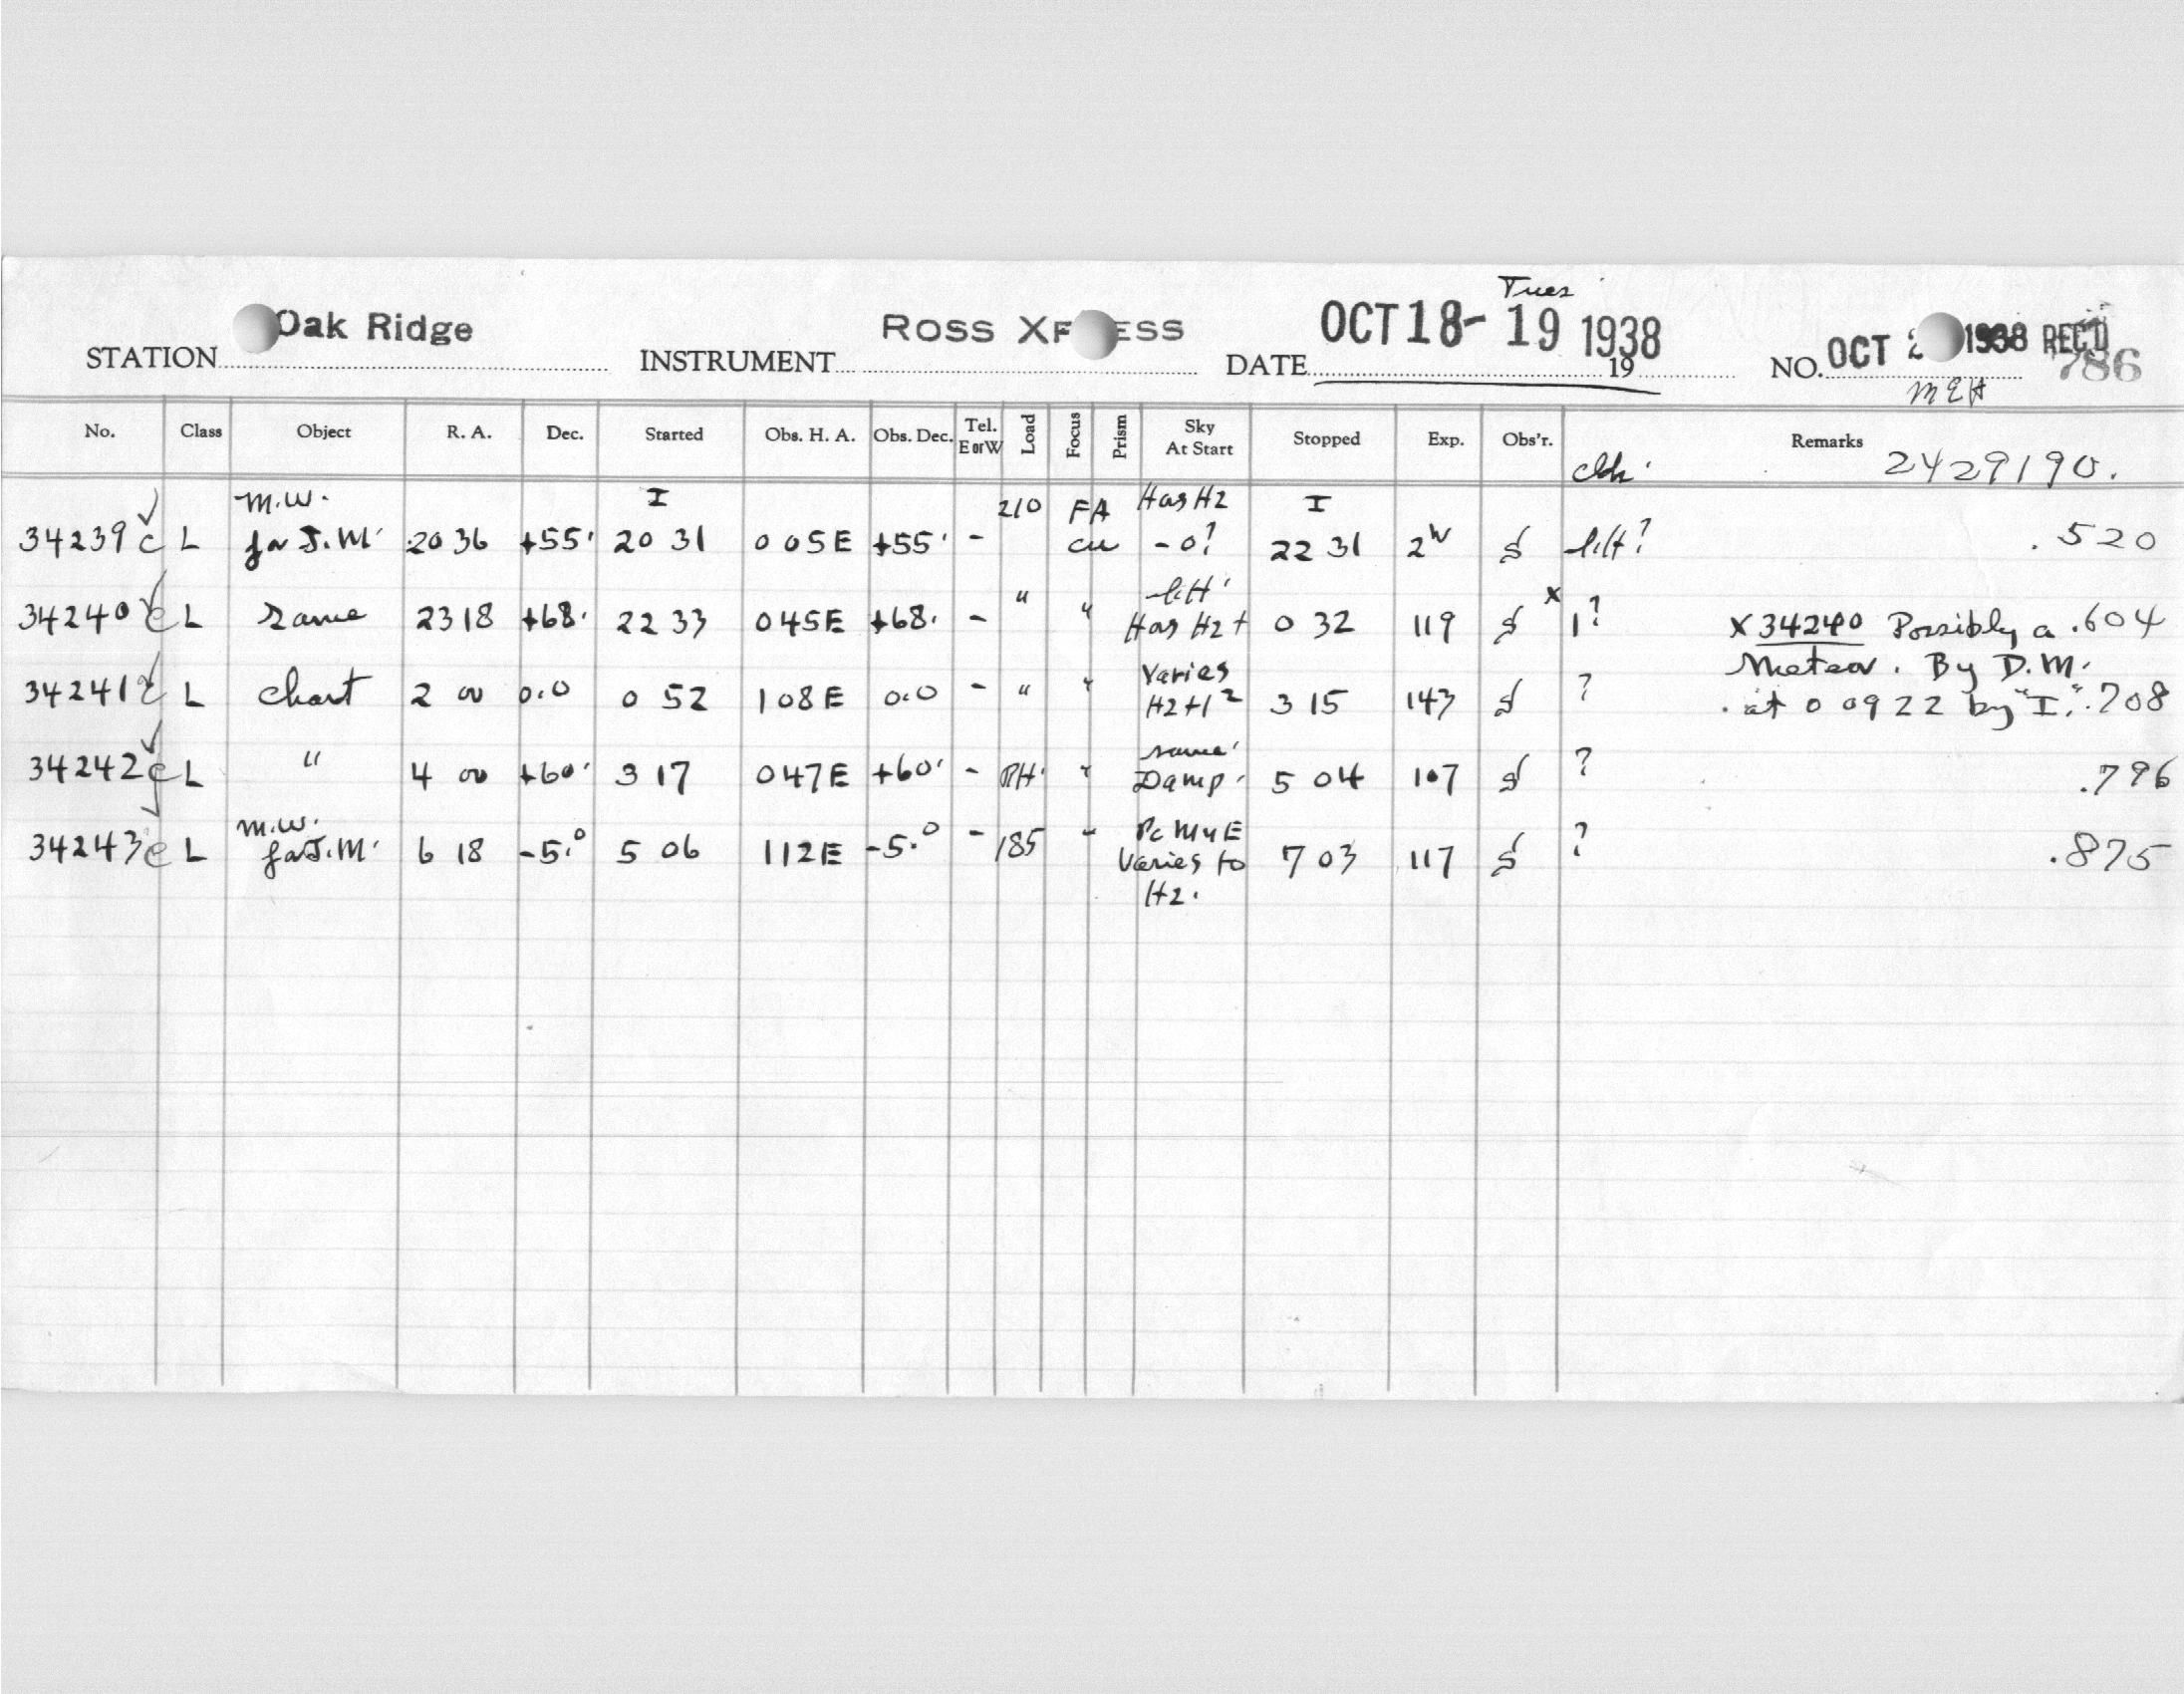 Tues
STATION Oak Ridge INSTRUMENT ROSS XF ESS DATE OCT 18- 19 1938 19 NO. OCT 2 1938 REC'D 786
MEH
No. Class Object R. A. Dec. Started Obs. H. A. Obs. Dec. Tel. E or W Load Focus Prism Sky At Start Stopped Exp. Obs'r. Remarks
2429190.
M.W. I 210 FA Has Hz I
34239 c L for J.M. 20 36 +55. 20 31 0 05E +55. - cu -0? 22 31 2 .520
34240 c L same 23 18 +68. 22 33 045E +68. - " " Has Hz + 0 32 119 1? X 34240 Possibly a .604
Meteor. By D.M.
34241 c L chart 2 00 0.0 0 52 108E 0.0 - " " Varies Hz+1 2 3 15 143 ? at 0 09 22 by "I". .708
34242 c L " 4 00 +60. 3 17 047E +60. - PH. " same. Damp. 5 04 107 ? .796
M.W.
34243 c L for J.M. 6 18 -5.0 5 06 112E -5.0 - 185 " Pc My E 7 03 117 ? .875
Varies to
Hz.